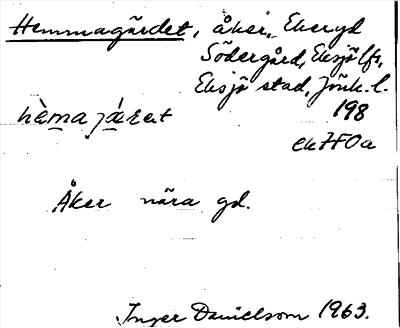 Hemmagärdet, åker, Ekeryd
Södergård, Eksjö lfs,
Eksjö stad, Jönk. l.
hèma jǽret 198
ek 7F0a
Åker nära gd.
Inger Danielsson 1963.